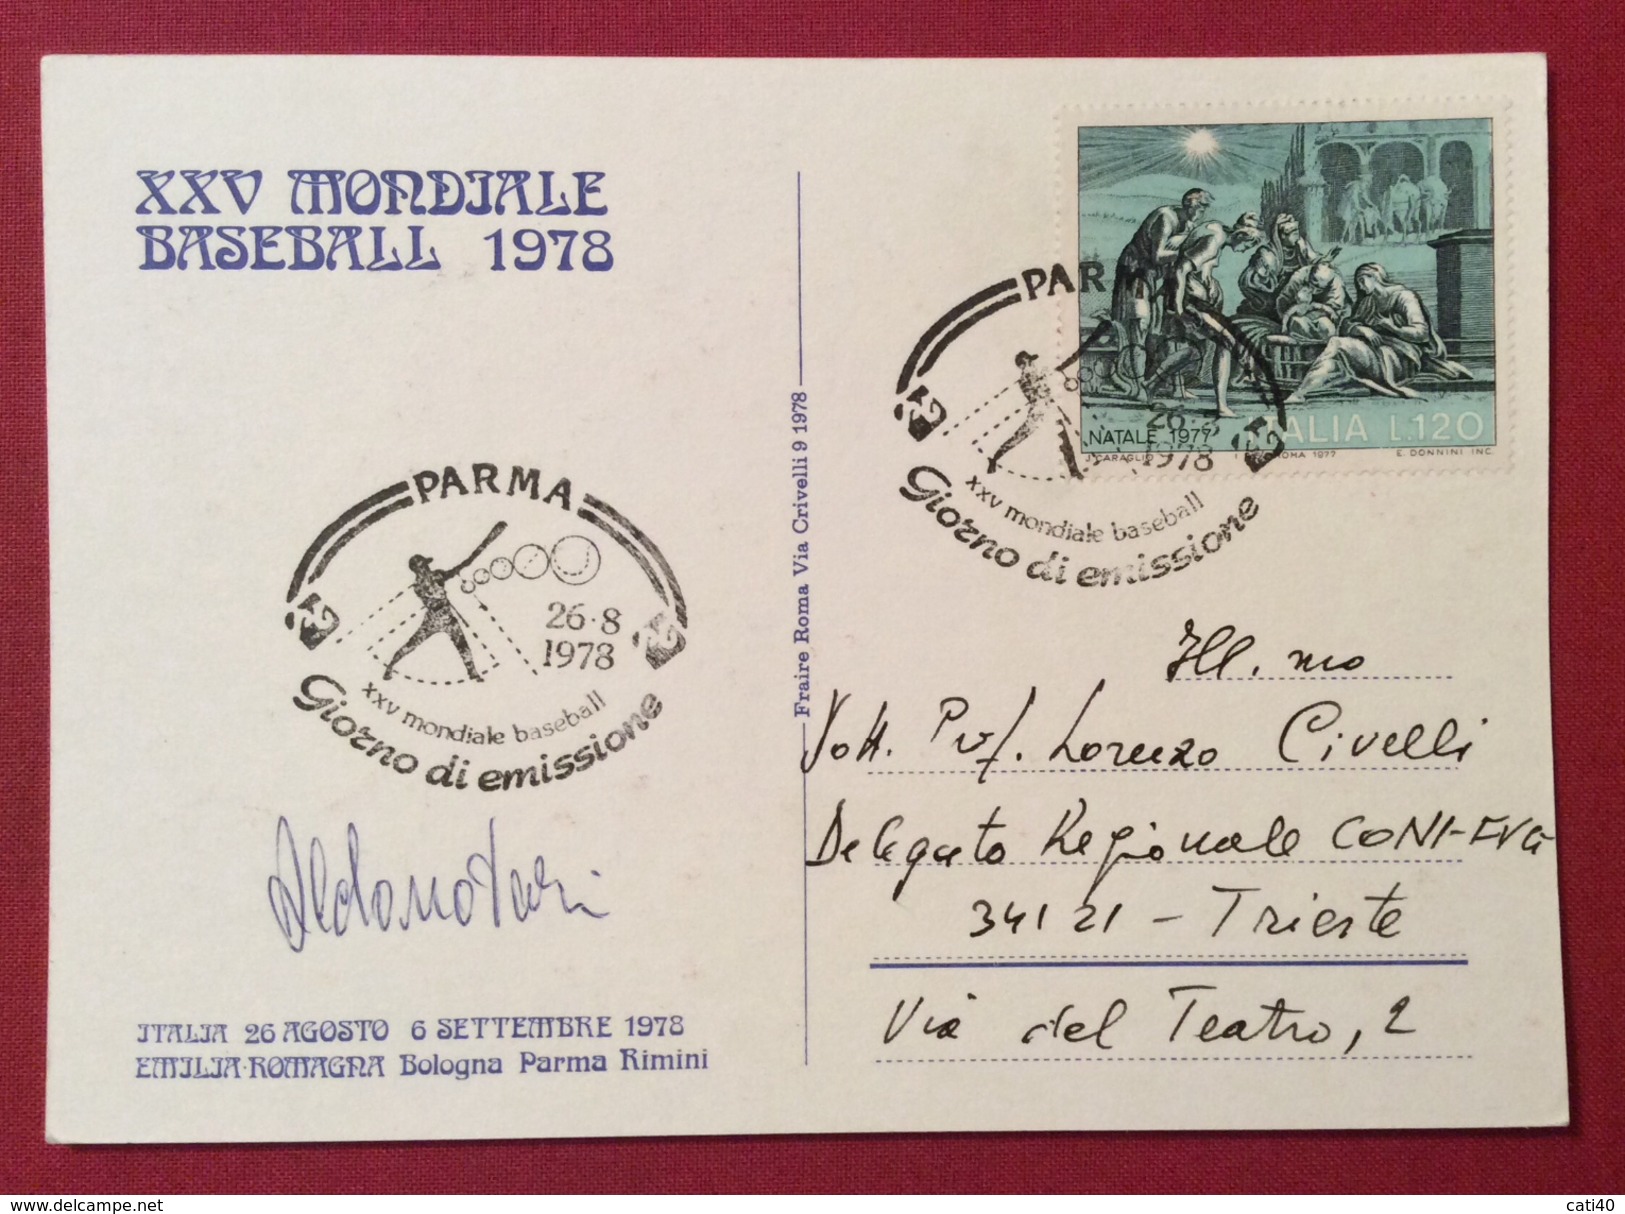 XXV MONDIALE
BASEBALL 1978
PARMA
26·8
1978
XXV mondiale baseball
Giorno di emissione
Aldo Notari
ITALIA 26 AGOSTO 6 SETTEMBRE 1978
EMILIA·ROMAGNA Bologna Parma Rimini
Fraire Roma Via Crivelli 9 1978
NATALE 1977 ITALIA L.120
J. CARAGLIO ROMA 1977 E. DONNINI INC.
PARMA
26·8
1978
XXV mondiale baseball
Giorno di emissione
Ill.mo
Dott. Prof. Lorenzo Civelli
Delegato Regionale CONI-FVG
34121 - Trieste
Via del Teatro, 2
cati40